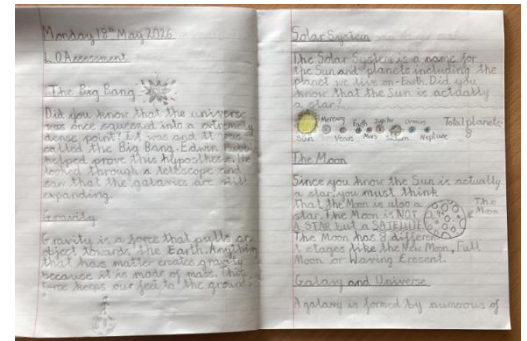 Monday 18th May 2026
L.O Assessment
The Big Bang
Did you know that the universe
was once squeezed into a extremely
dense point? It was and it was
called the Big Bang. Edwin Hubble
helped prove this hypothesis. He
looked through a telescope and
saw that the galaxies are still
expanding.
Gravity
Gravity is a force that pulls an
object towards the Earth. Anything
that has matter creates gravity
because it is made of mass. This
force keeps our feet to the ground.
Solar System
The Solar System is a name for
the Sun and planets including the
planet we live on-Earth. Did you
know that the Sun is actually
a star?
Sun Mercury Venus Earth Mars Jupiter Saturn Uranus Neptune
Total planets
8
The Moon
Since you know the Sun is actually
a star, you must think
that the Moon is also a
star. The Moon is NOT
A STAR but a SATELLITE.
The Moon has 8 different
stages like the New Moon, Full
Moon or Waxing Cresent.
The
Moon
Galaxy and Universe
A galaxy is formed by numerous of